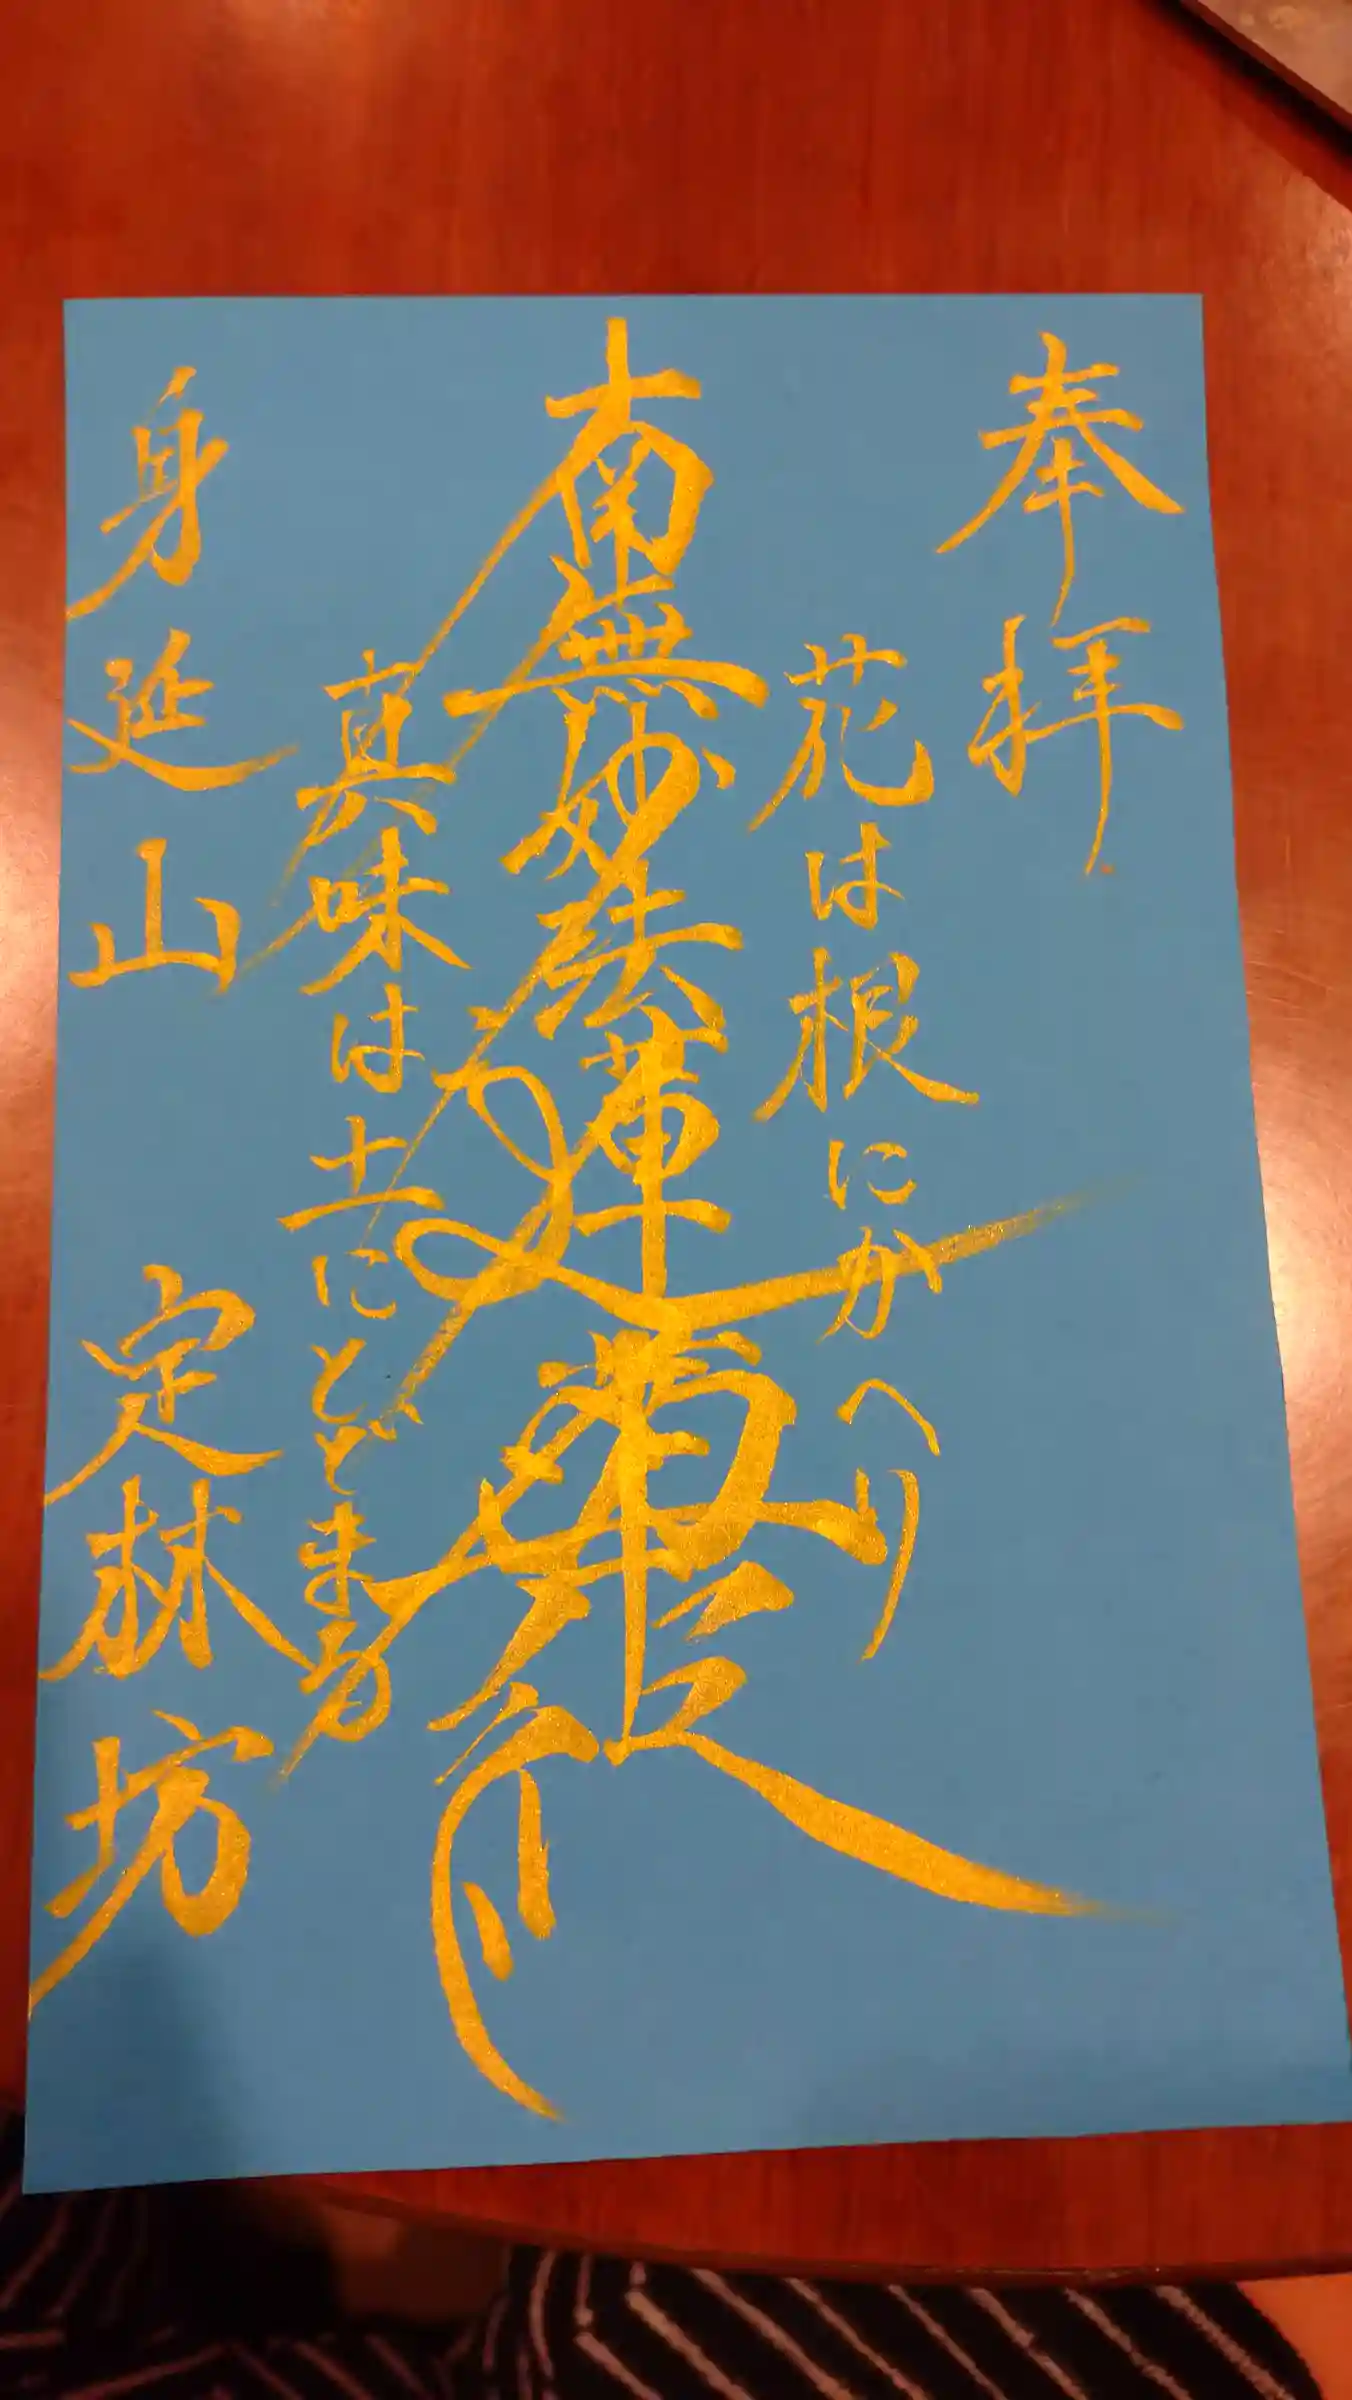 奉拝
花は根にかへり
南無妙法蓮華経
真味は土にとどまる
身延山 定林坊